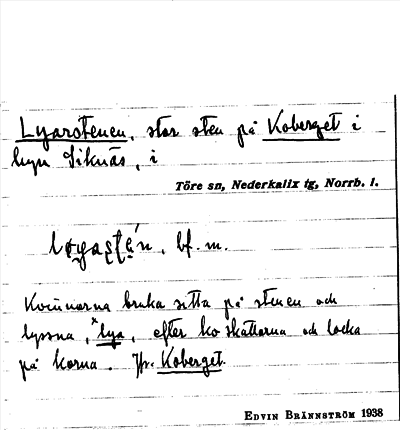 Lyarstenen, stor sten på Koberget i
byn Siknäs, i
Töre sn, Nederkalix tg, Norrb. l.
bf. m.
Kvinnorna bruka sitta på stenen och
lyssna, *lya, efter ko skällorna och locka
på korna. Jfr. Koberget.
EDVIN BRÄNNSTRÖM 1938